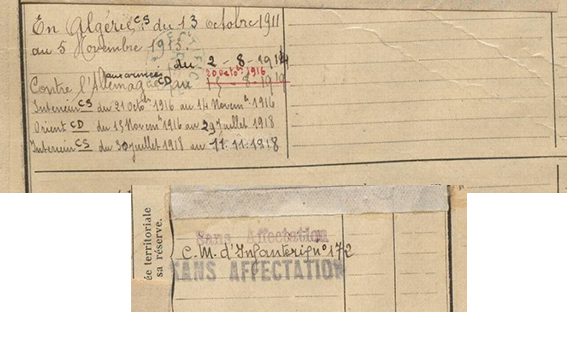 En Algérie CS du 13 Octobre 1911
au 5 Novembre 1913.
du 2 - 8 - 1914
Contre l'Allemagne aux armées CD au 20 Octo. 1916
Intérieur CS du 21 Octobre 1916 au 14 Novem. 1916
Orient CD du 15 Novem. 1916 au 29 Juillet 1918
Intérieur CS du 30 juillet 1918 au 11.11.1918
ée territoriale
sa réserve.
Sans Affectation
C.M. d'Infanterie n° 172
SANS AFFECTATION